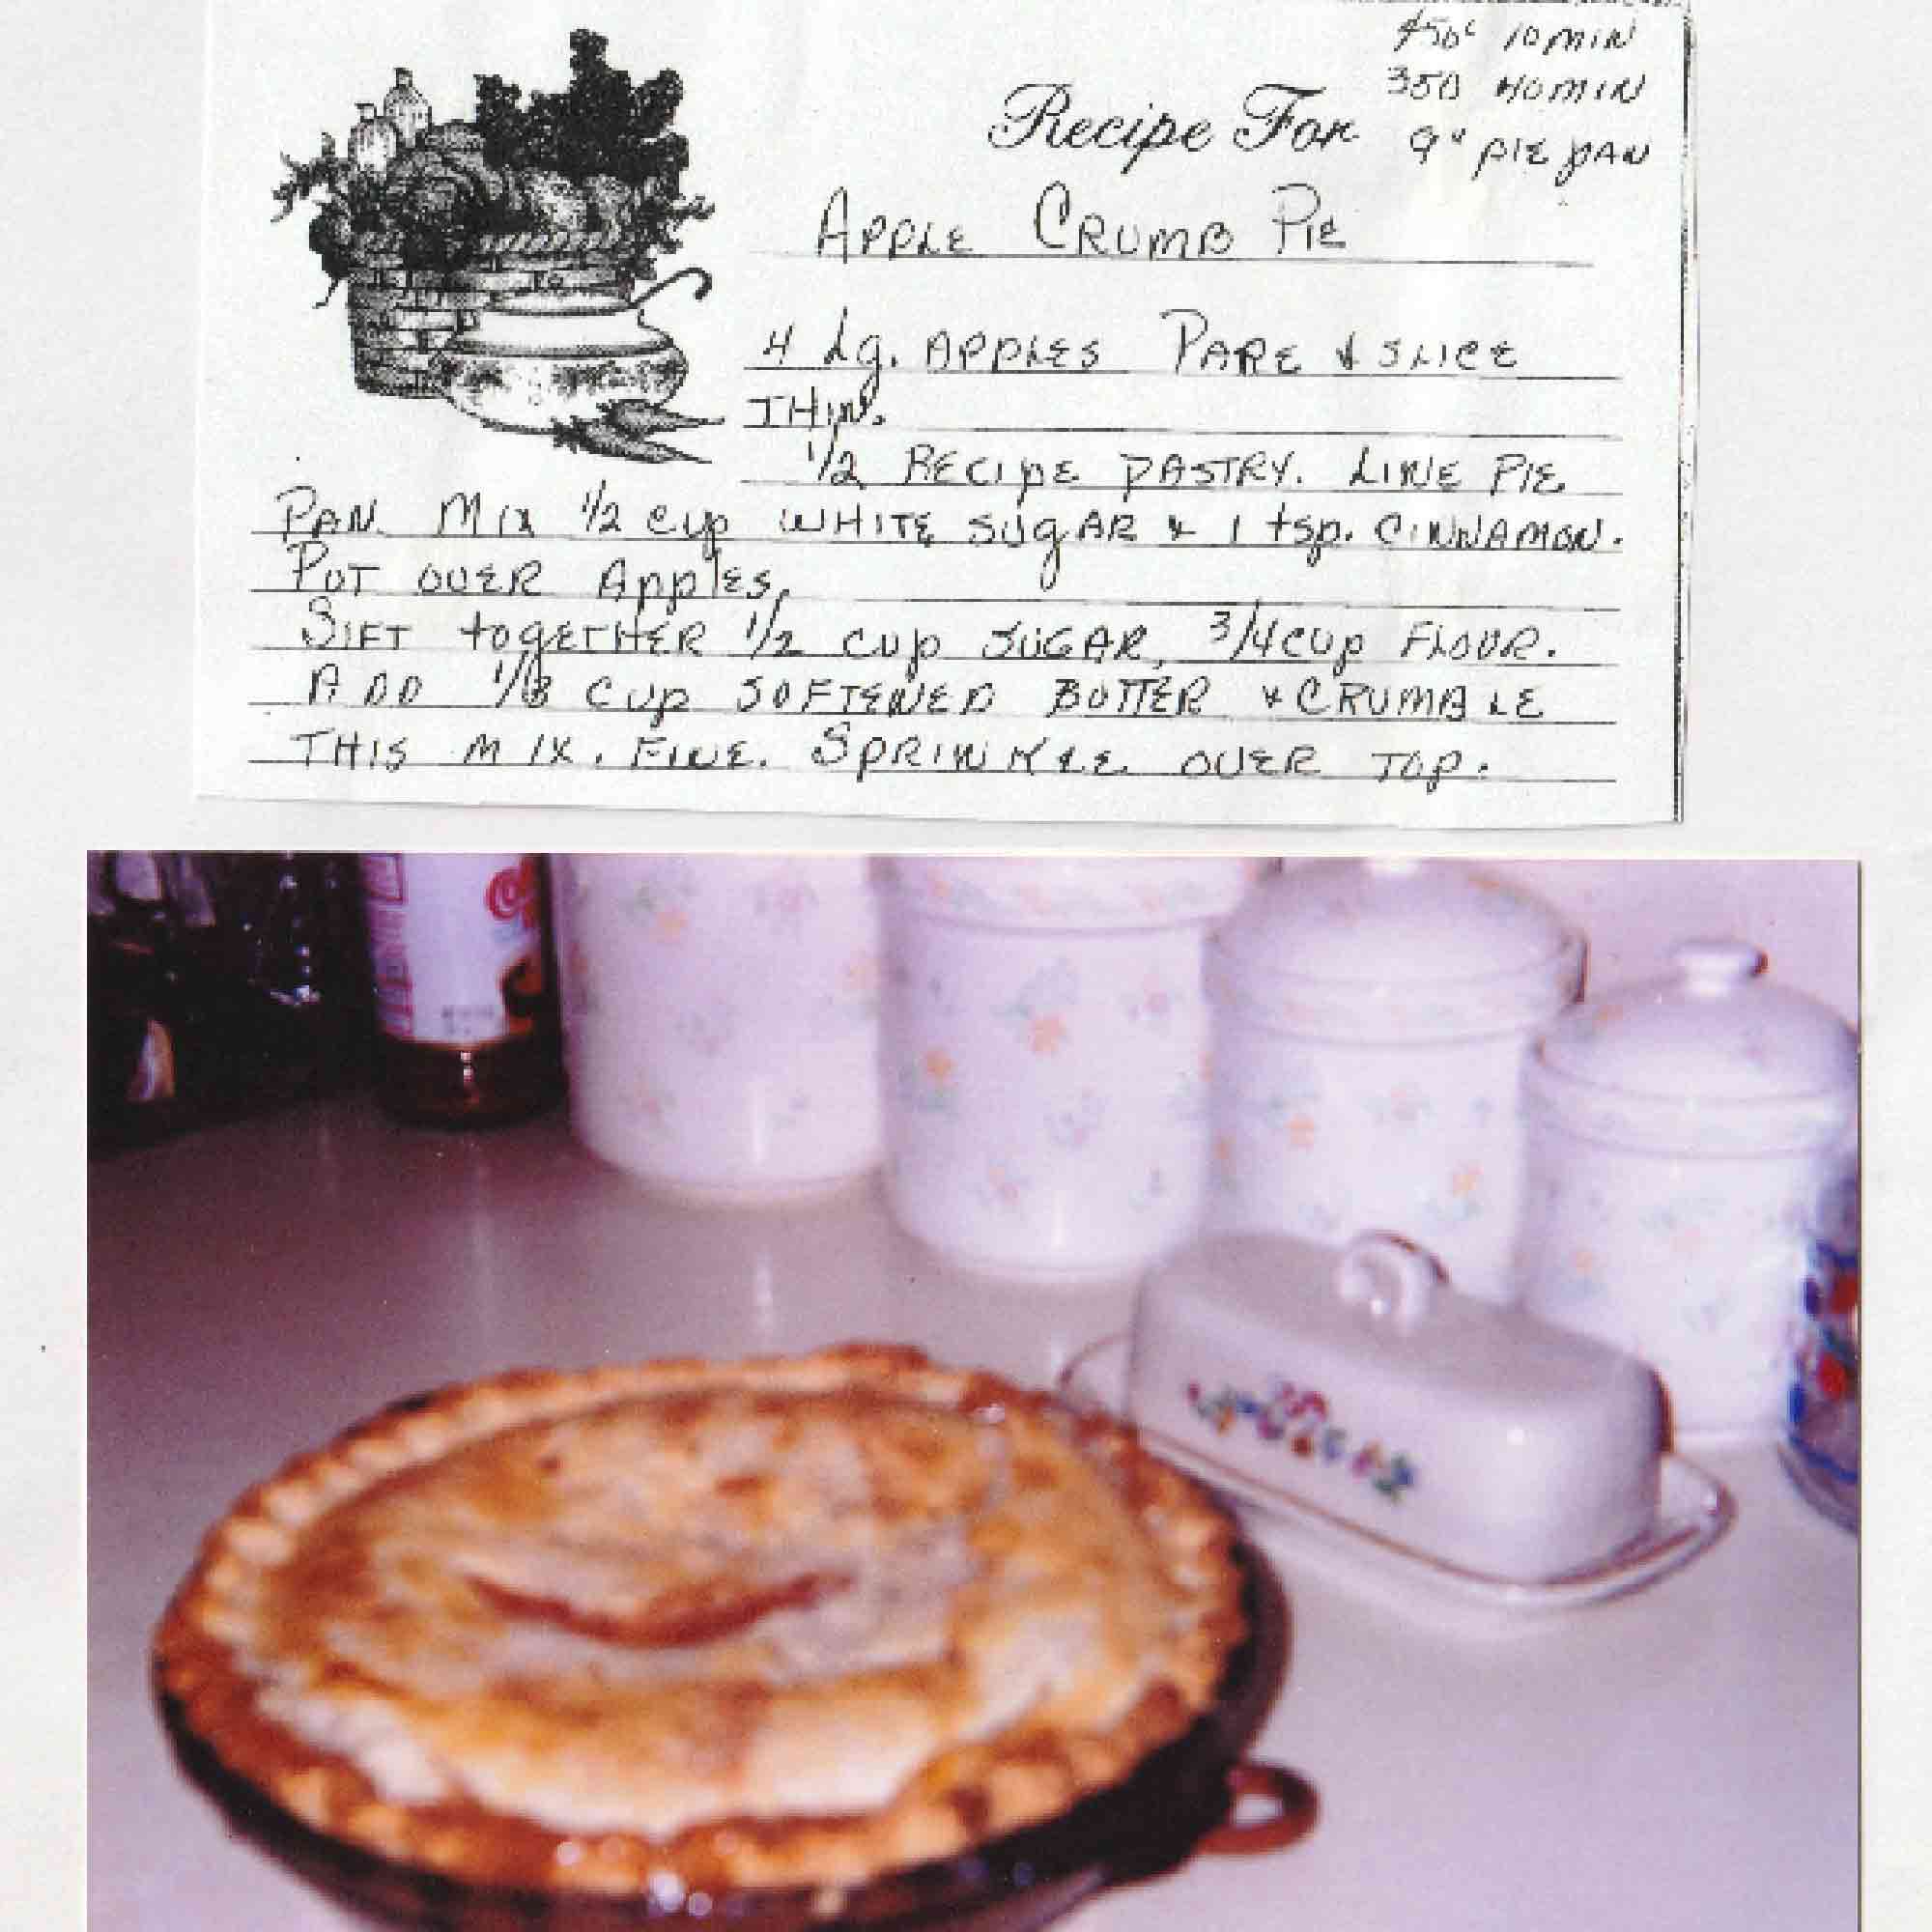 450° 10 MIN
350 40 MIN
Recipe For
9" PIE PAN
APPLE CRUMB PIE
4 Lg. APPLES PARE & SLICE
THIN.
1/2 RECIPE PASTRY. LINE PIE
PAN. MIX 1/2 cup WHITE SUGAR & 1 tsp. CINNAMON.
PUT OVER Apples.
SIFT togETHER 1/2 cup SUGAR, 3/4 cup FLOUR.
ADD 1/3 cup SOFTENED BUTTER & CRUMBLE
THIS MIX. FINE. SPRINKLE OVER TOP.